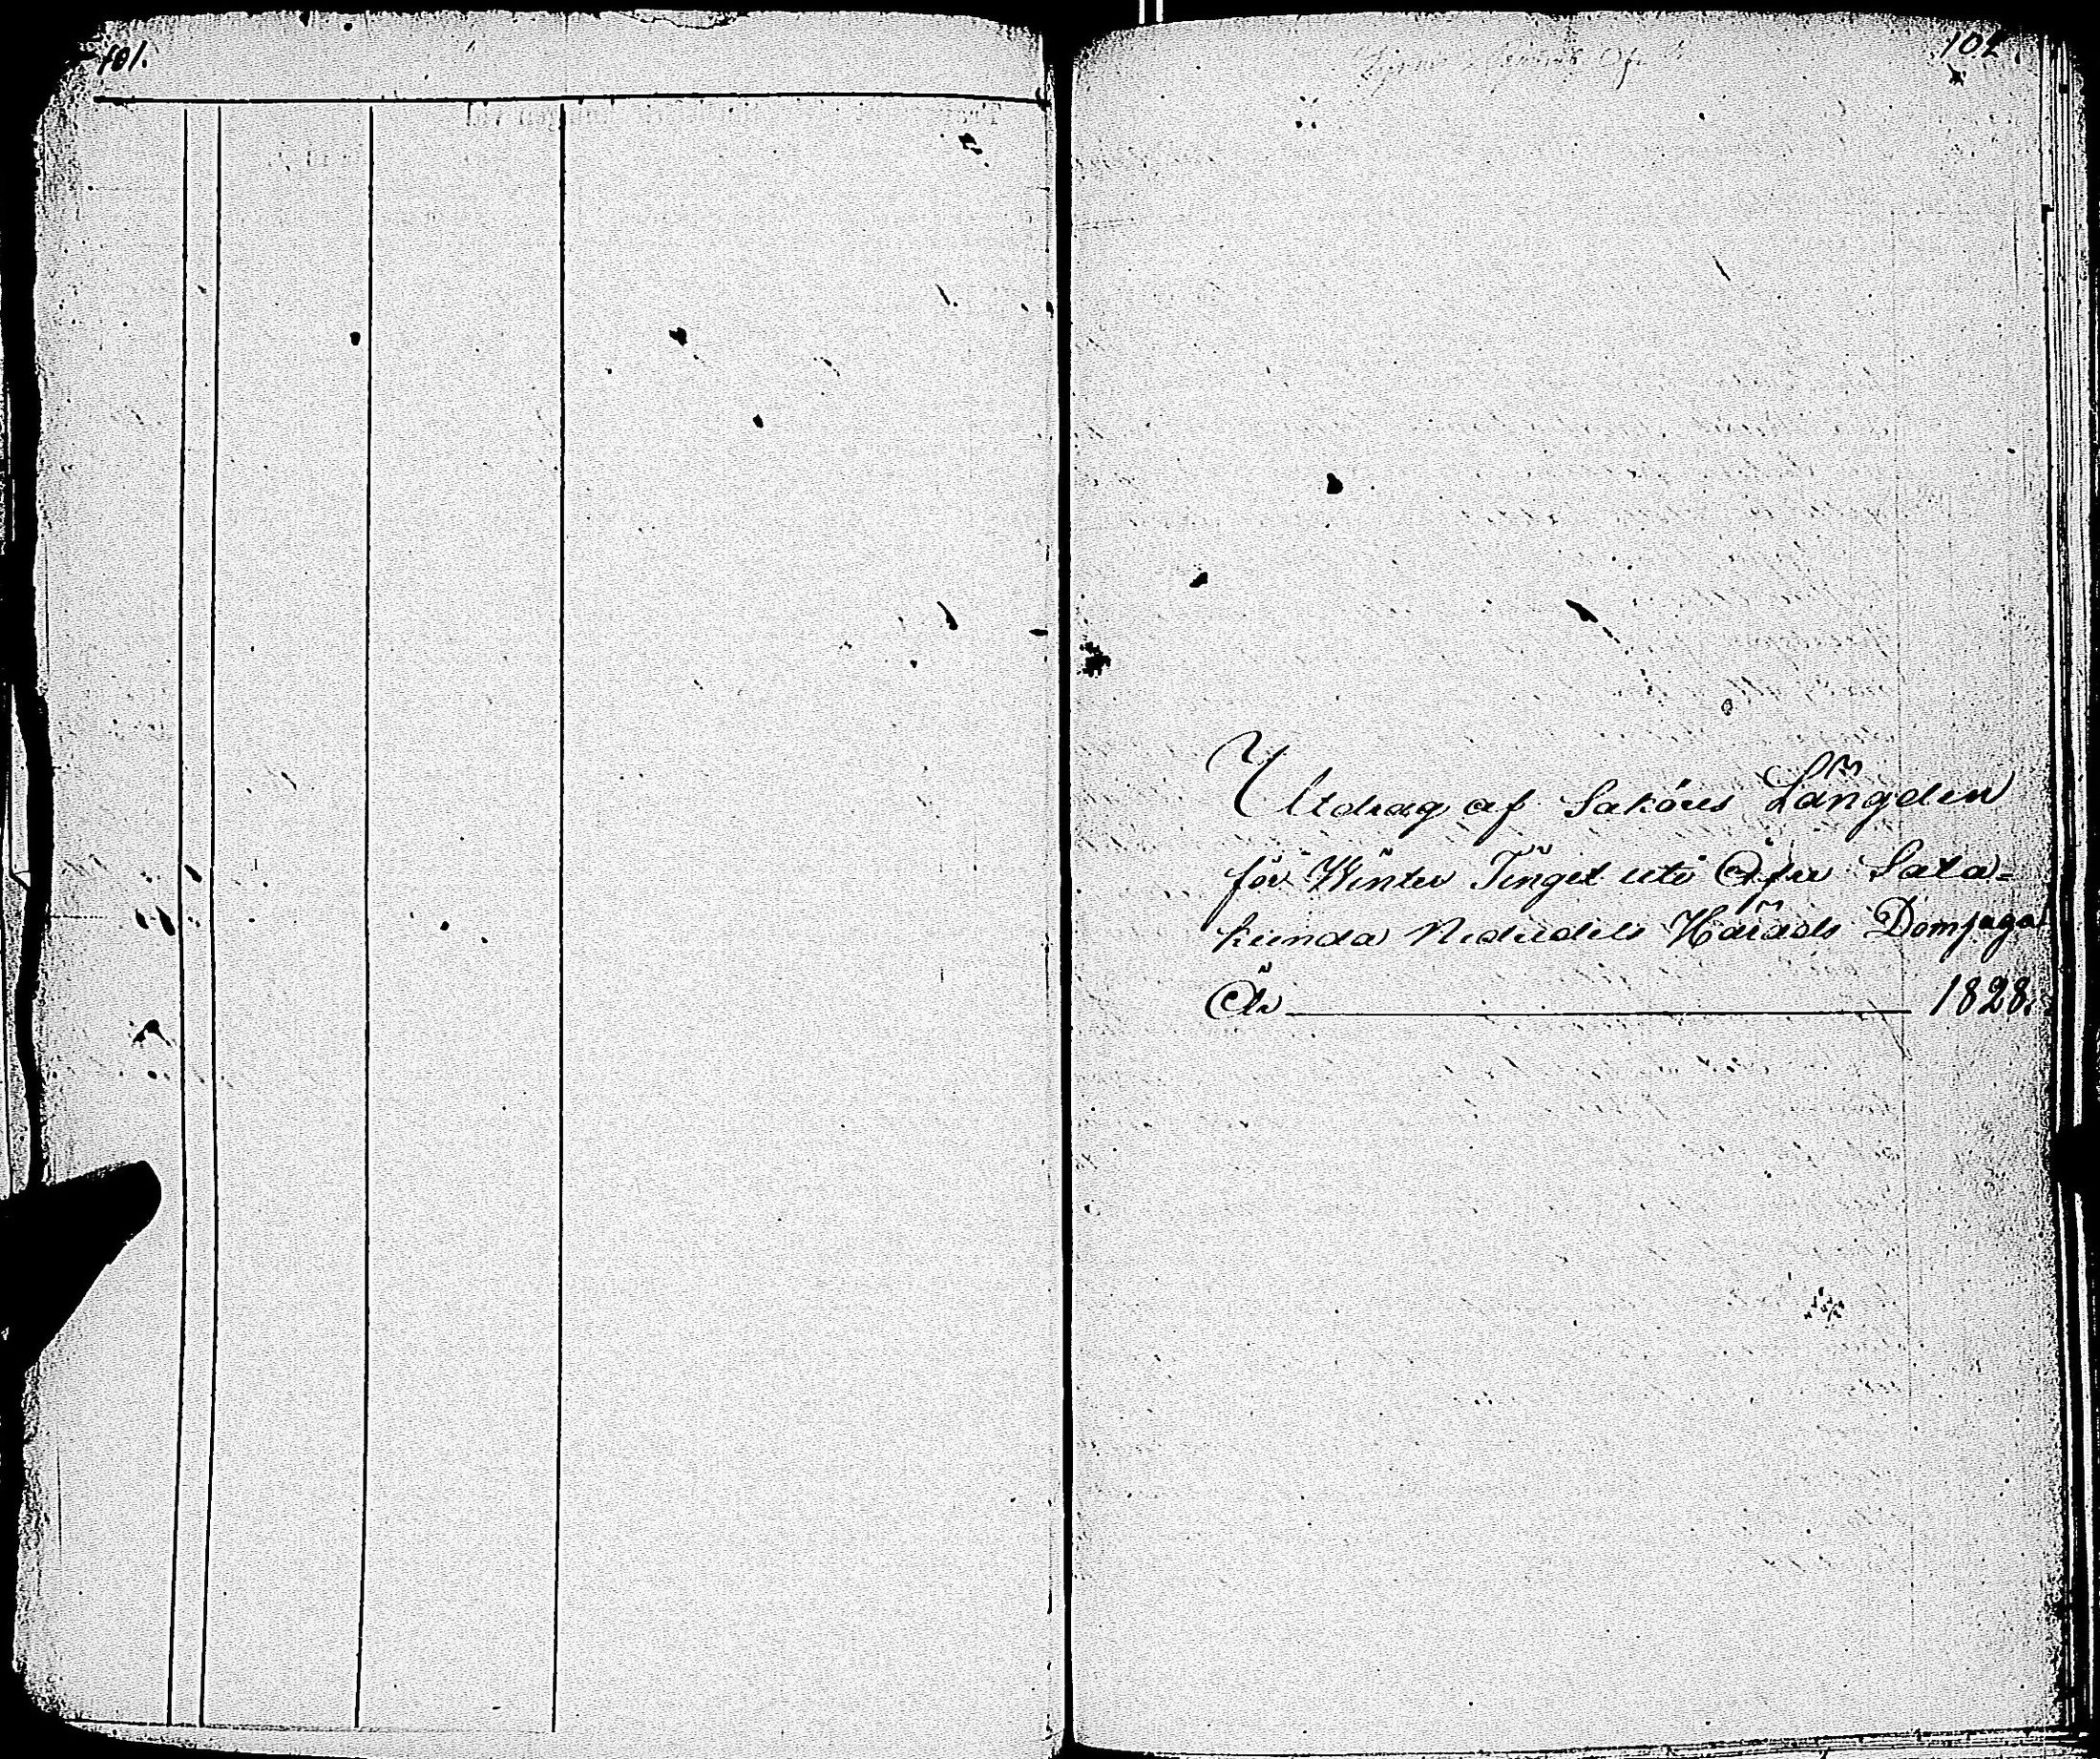 101.
102
Utdrag af Saköres Längden
för Winter Tinget uti Öfra Sata=
kunda Nedredels Härads Domsaga
År 1828.